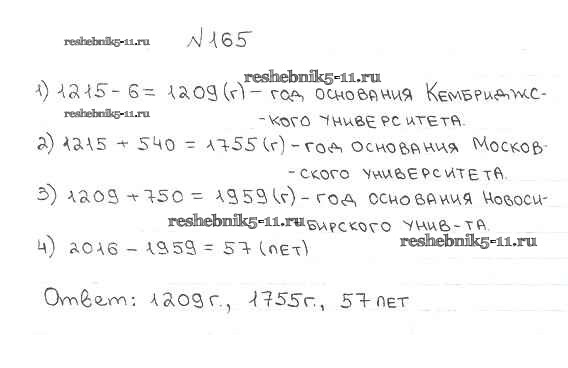 reshebnik5-11.ru №165
reshebnik5-11.ru
1) 1215 - 6 = 1209 (г) - год основания Кембриджс-
reshebnik5-11.ru
-кого университета.
2) 1215 + 540 = 1755 (г) - год основания Москов-
-ского университета.
3) 1209 + 750 = 1959 (г) - год основания Новоси-
reshebnik5-11.ru
-бирского унив-та.
reshebnik5-11.ru
4) 2016 - 1959 = 57 (лет)
Ответ: 1209г., 1755г., 57 лет